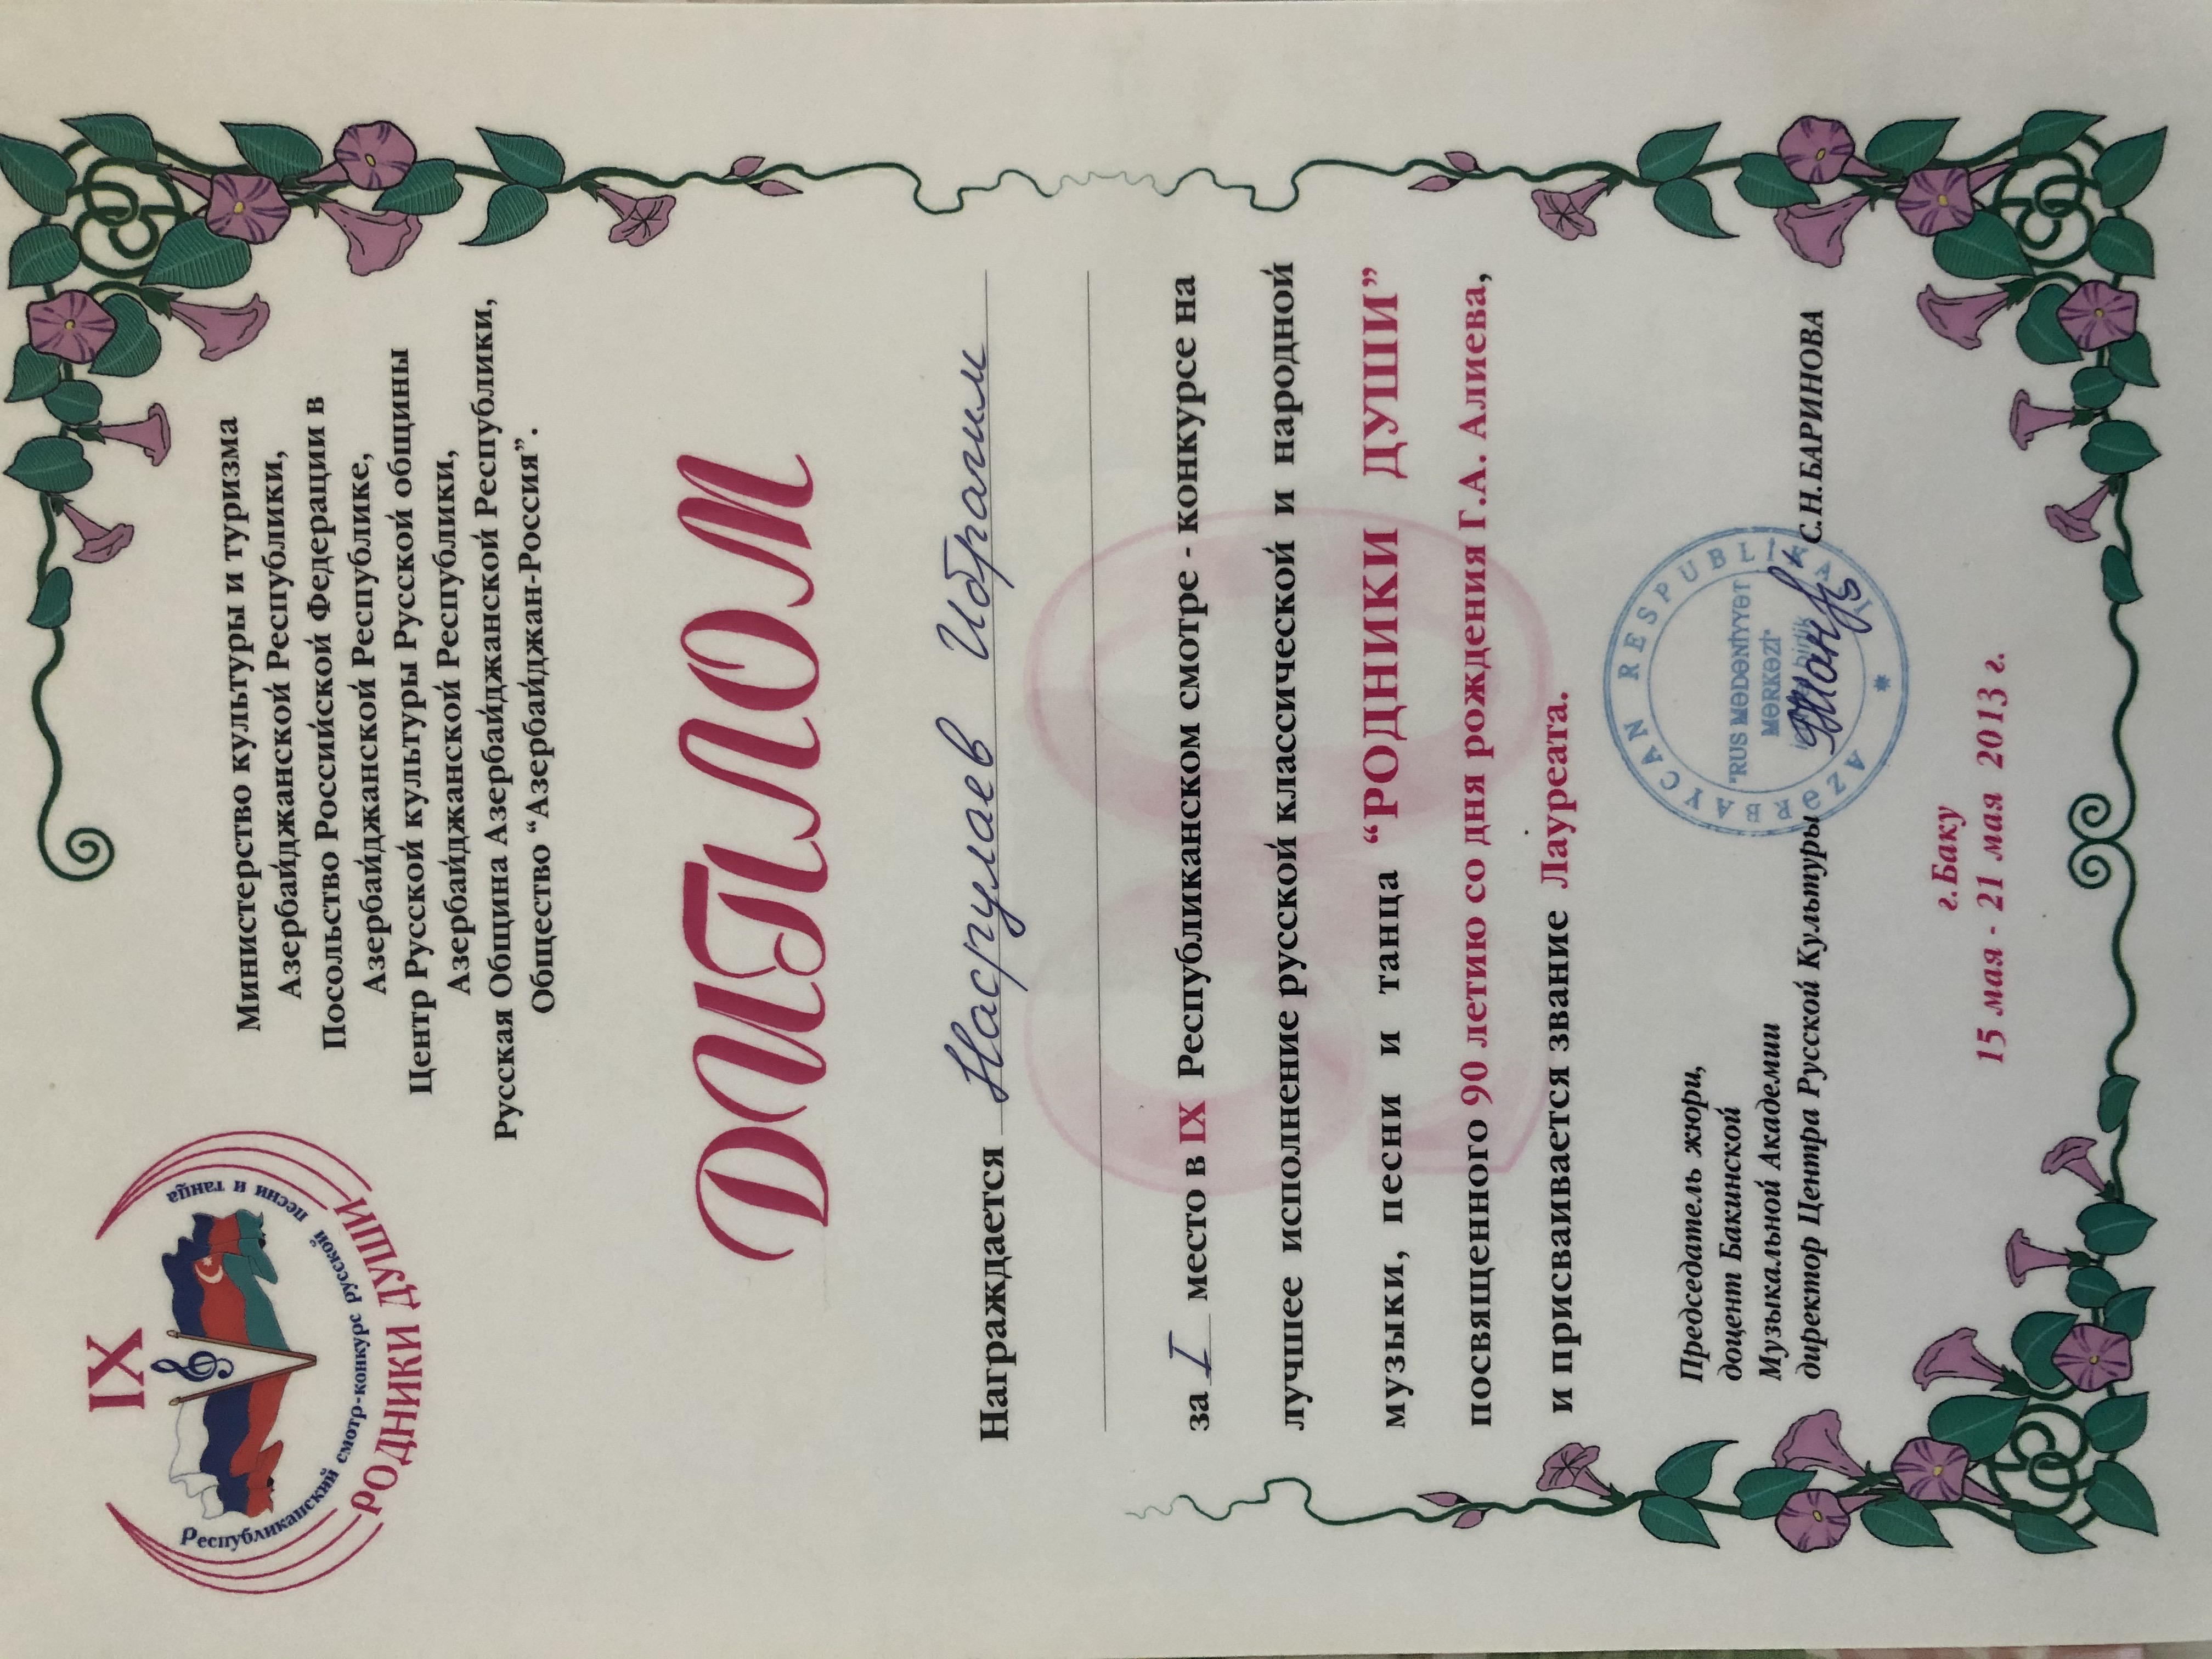 IX
Республиканский смотр-конкурс русской песни и танца
РОДНИКИ ДУШИ
Министерство культуры и туризма
Азербайджанской Республики,
Посольство Российской Федерации в
Азербайджанской Республике,
Центр Русской культуры Русской общины
Азербайджанской Республики,
Русская Община Азербайджанской Республики,
Общество “Азербайджан-Россия”.
ДИПЛОМ
Награждается Насрулаев Ибрагим
90
за I место в IX Республиканском смотре - конкурсе на
лучшее исполнение русской классической и народной
музыки, песни и танца “РОДНИКИ ДУШИ”
посвященного 90 летию со дня рождения Г.А. Алиева,
и присваивается звание Лауреата.
Председатель жюри,
доцент Бакинской
Музыкальной Академии
директор Центра Русской Культуры С.Н.БАРИНОВА
AZƏRBAYCAN RESPUBLİKASI
"RUS MƏDƏNİYYƏT
MƏRKƏZİ"
birlik
г.Баку
15 мая - 21 мая 2013 г.